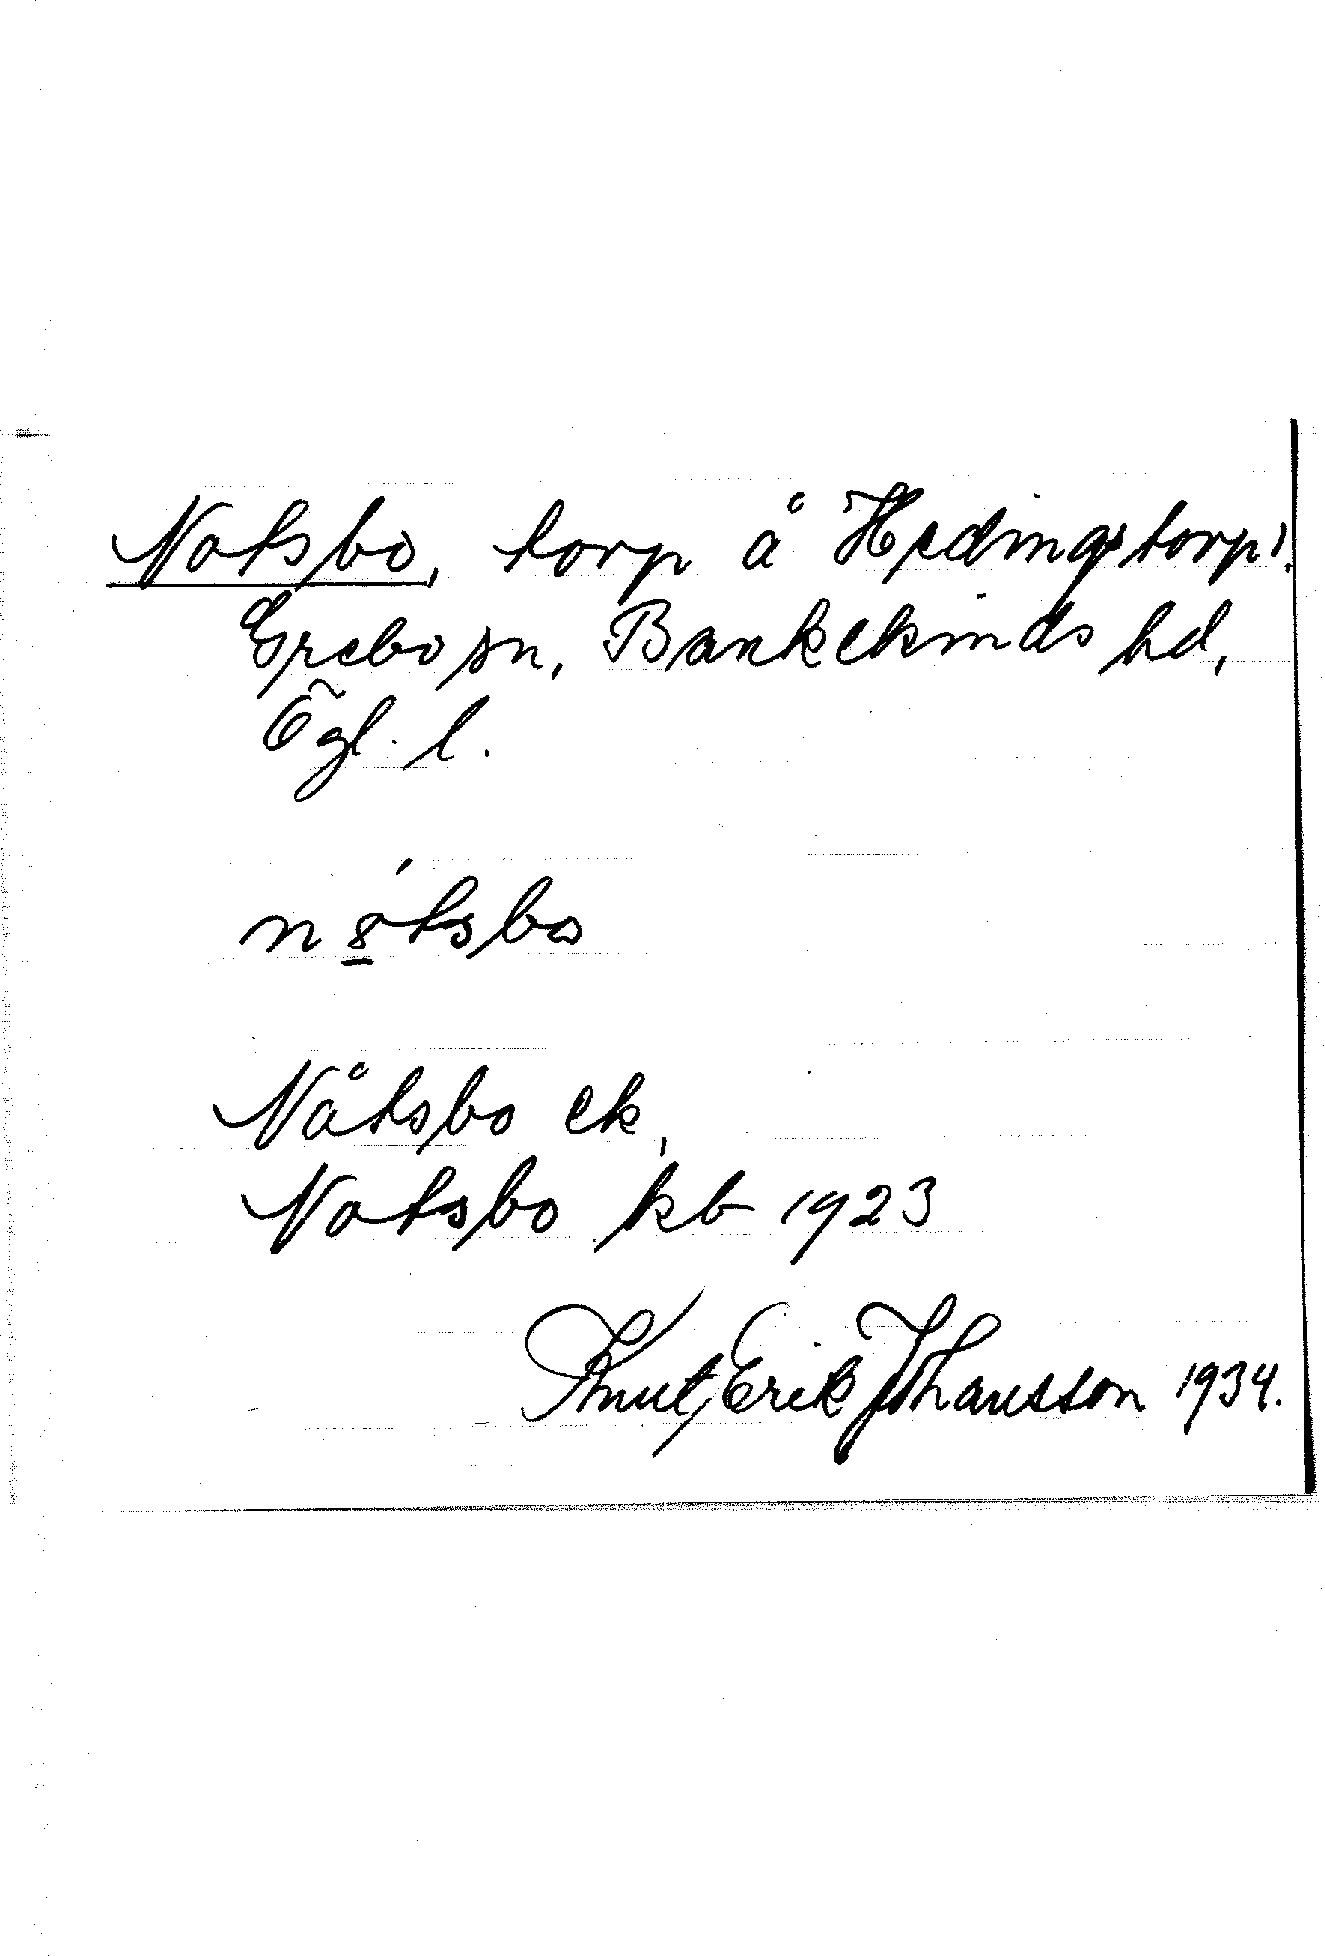 Notsbo, torp å Hedingstorp,
Grebo sn, Bankekinds hd,
Ögl. l.
Nåtsbo ek,
Notsbo kb 1923
Knut Erik Johansson 1934.